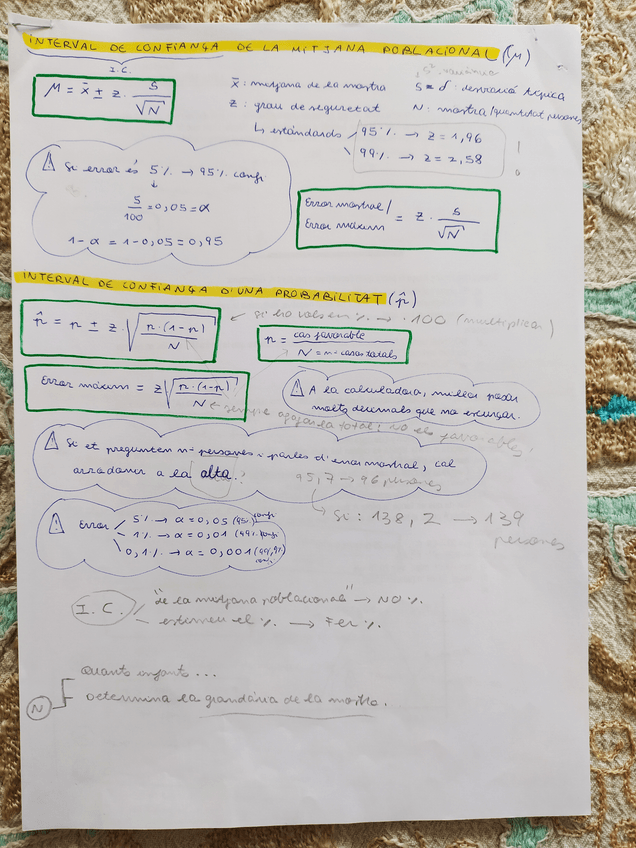 INTERVAL DE CONFIANÇA DE LA MITJANA POBLACIONAL (μ)
I.C.
μ = x̄ ± z · s/√N
x̄: mitjana de la mostra
s = σ: desviació típica
z: grau de seguretat
N: mostra/quantitat persones
↳ estàndards
95% → z = 1,96
99% → z = 2,58
⚠ Si error és 5% → 95% confi.
↓
5/100 = 0,05 = α
1 - α = 1 - 0,05 = 0,95
Error mostral/
Error màxim = z · s/√N
INTERVAL DE CONFIANÇA D'UNA PROBABILITAT (p̂)
p̂ = p ± z · √(p·(1-p)/N)
← si ho vols en % → · 100 (multiplicar)
p = cas favorable/N = nº casos totals
Error màxim = z√(p·(1-p)/N)
← sempre agafar la total; NO els favorables!
⚠ A la calculadora, millor posar
molts decimals que no escurçar.
⚠ Si et pregunten nº persones i parles d'error mostral, cal
arrodonir a la alta.
95,7 → 96 persones
↳ Si: 138,2 → 139
persones
⚠ Error
5% → α = 0,05 (95% confi)
1% → α = 0,01 (99% confi)
0,1% → α = 0,001 (99,9% confi)
I.C.
"de la mitjana poblacional" → NO %
estimeu el % → Fer %
N
Quants enfants...
Determina la grandària de la mostra.